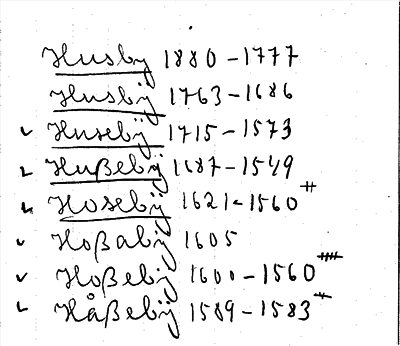 Husby 1880-1777
Husbÿ 1763-1686
✓ Husebÿ 1715-1573
✓ Hußebÿ 1687-1549
✓ Hosebÿ 1621-1560 ++
✓ Hoßabÿ 1605
✓ Hoßebÿ 1600-1560 ++++
✓ Håßebÿ 1589-1583 +